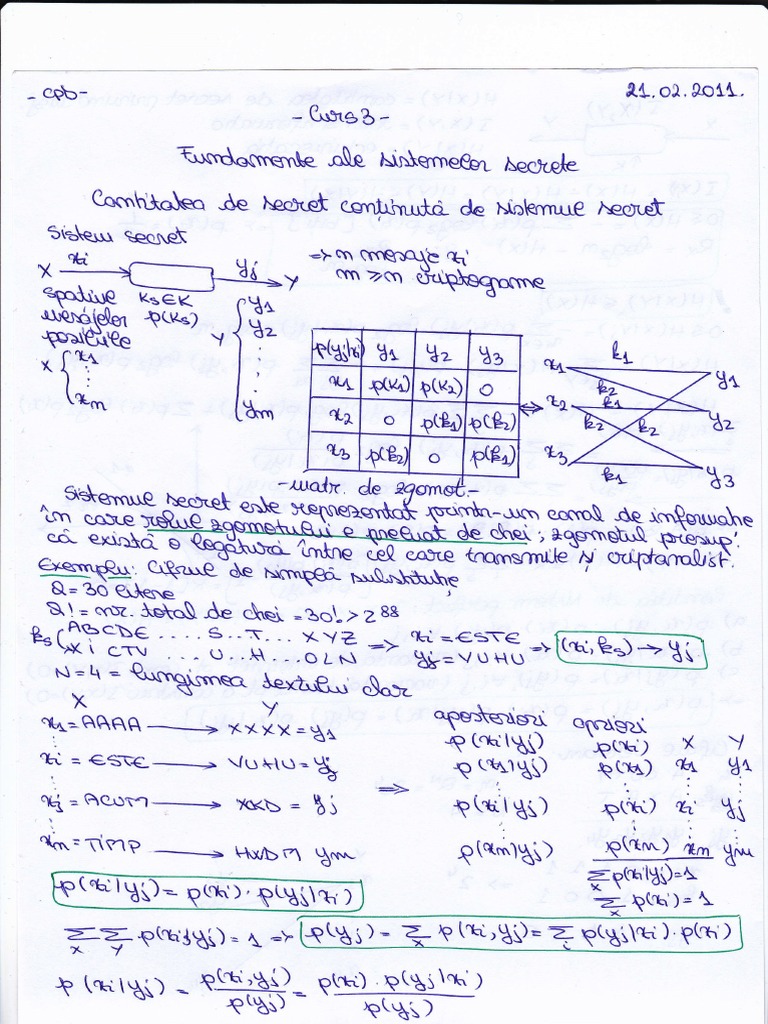 -cpb-
21.02.2011.
-Curs3-
Fundamente ale sistemelor secrete
Cantitatea de secret continută de sistemul secret
Sistem secret
X xi yj Y
=> n mesaje xi
m ≥ n criptograme
spatiul mesajelor posibile
Ks∈K
p(Ks)
X { x1 ⋮ xm
Y { y1 y2 ⋮ ym
p(yj|xi) y1 y2 y3
x1 p(k1) p(k2) 0
x2 0 p(k1) p(k2)
x3 p(k2) 0 p(k1)
<=>
x1 k1 y1
k2
x2 k1 y2
k2 k2
x3 k1 y3
-matr. de zgomot-
Sistemul secret este reprezentat printr-un canal de informatie
în care rolul zgomotului e preluat de chei; zgomotul presup.
că există o legătură între cel care transmite și criptanalist.
Exemplu: Cifrul de simplă substituție
Q=30 litere
Q! = nr. total de chei = 30! > 2^88
ks ( ABCDE .... S .. T ... XYZ => xi = ESTE => (xi, ks) → yj
X I C T V .... U .. H ... O L N yj = VUHU
N=4 = lungimea textului clar
X Y
x1 = AAAA → XXXX = y1
xi = ESTE → VUHU = yj
xj = ACUM → XKD = yj
xm = TIMP → HXDM ym
=>
aposteriori apriori
p(xi|yj) p(xi) X Y
p(x1|yj) p(x1) x1 y1
p(xi|yj) p(xi) xi yj
p(xm|yj) p(xm) xm ym
∑X p(xi|yj)=1
∑X p(xi)=1
p(xi|yj) = p(xi) · p(yj|xi)
∑X ∑Y p(xi,yj) = 1 => p(yj) = ∑X p(xi,yj) = ∑i p(yj|xi) · p(xi)
p(xi|yj) = p(xi,yj) / p(yj) = p(xi) · p(yj|xi) / p(yj)